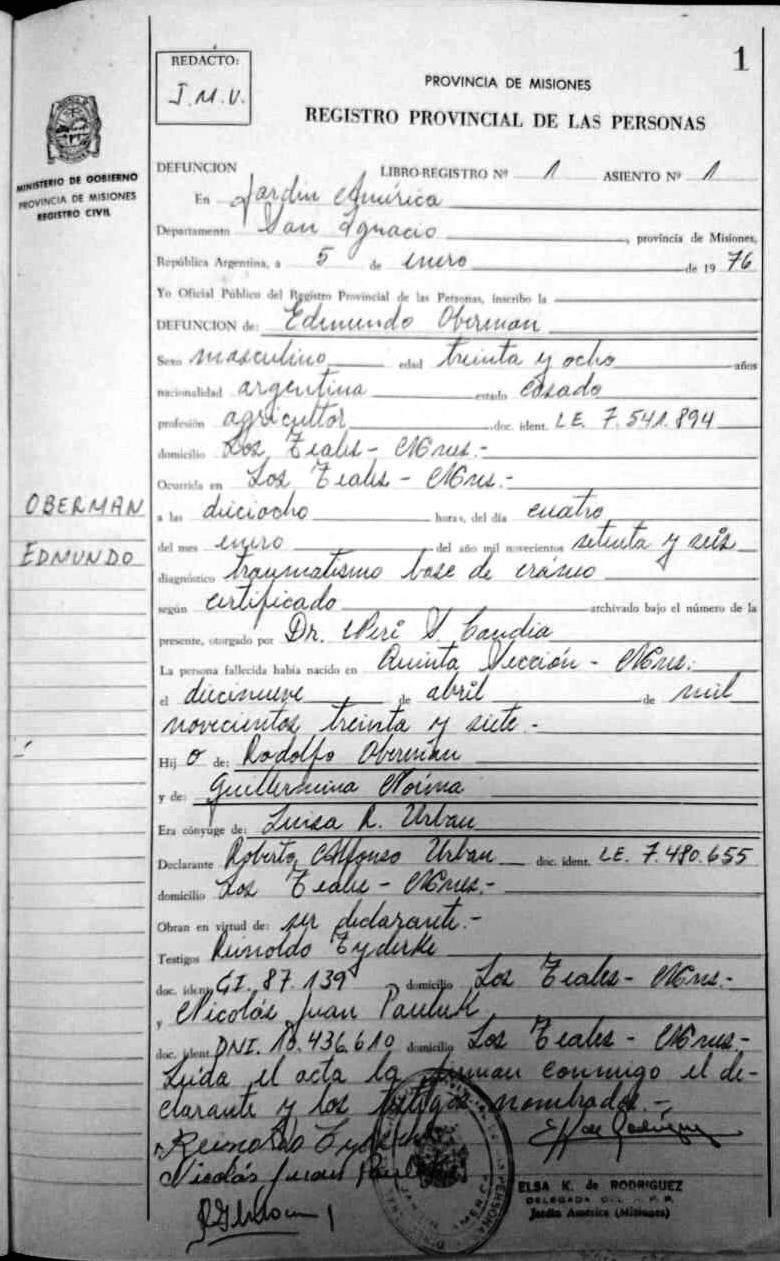 1
REDACTO:
J.M.V.
PROVINCIA DE MISIONES
REGISTRO PROVINCIAL DE LAS PERSONAS
MINISTERIO DE GOBIERNO
PROVINCIA DE MISIONES
REGISTRO CIVIL
DEFUNCION LIBRO-REGISTRO Nº 1 ASIENTO Nº 1
En Jardín América
Departamento San Ignacio, provincia de Misiones,
República Argentina, a 5 de enero de 1976
Yo Oficial Público del Registro Provincial de las Personas, inscribo la
DEFUNCION de: Edmundo Oberman
Sexo masculino edad treinta y ocho años
nacionalidad argentina estado casado
profesión agricultor doc. ident. LE. 7.541.894
domicilio Los Teales - Mnes.-
Ocurrida en Los Teales - Mnes.-
OBERMAN
EDMUNDO
a las dieciocho horas, del día cuatro
del mes enero del año mil novecientos setenta y seis
diagnóstico traumatismo base de cráneo
según certificado archivado bajo el número de la
presente, otorgado por Dr. Neri S. Candia
La persona fallecida había nacido en Quinta Sección - Mnes.
el diecinueve de abril de mil
novecientos treinta y siete.-
Hijo de: Rodolfo Oberman
y de: Guillermina Noima
Era cónyuge de: Luisa R. Urban
Declarante Roberto Alfonso Urban doc. ident. LE. 7.480.655
domicilio Los Teales - Mnes.-
Obran en virtud de: ser declarante.-
Testigos Reinoldo Tyderke
doc. ident. CI. 87.139 domicilio Los Teales - Mnes.-
y Nicolás Juan Pauluk
doc. ident. DNI. 10.436.610 domicilio Los Teales - Mnes.-
Leída el acta la firman conmigo el de-
clarante y los testigos nombrados.-
Reinoldo
Nicolás Juan
ELSA K. de RODRIGUEZ
DELEGADA
Jardín América (Misiones)